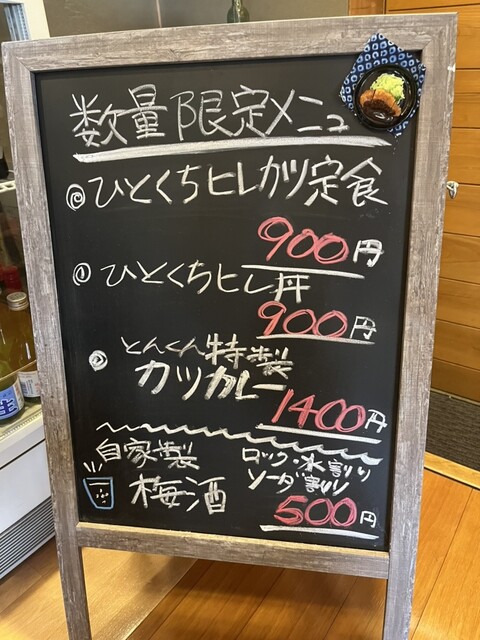 数量限定メニュ
◎ひとくちヒレカツ定食
900円
◎ひとくちヒレ丼
900円
◎とんくん特製
カツカレー
1400円
自家製
梅酒
ロック・水割り
ソーダ割り
500円